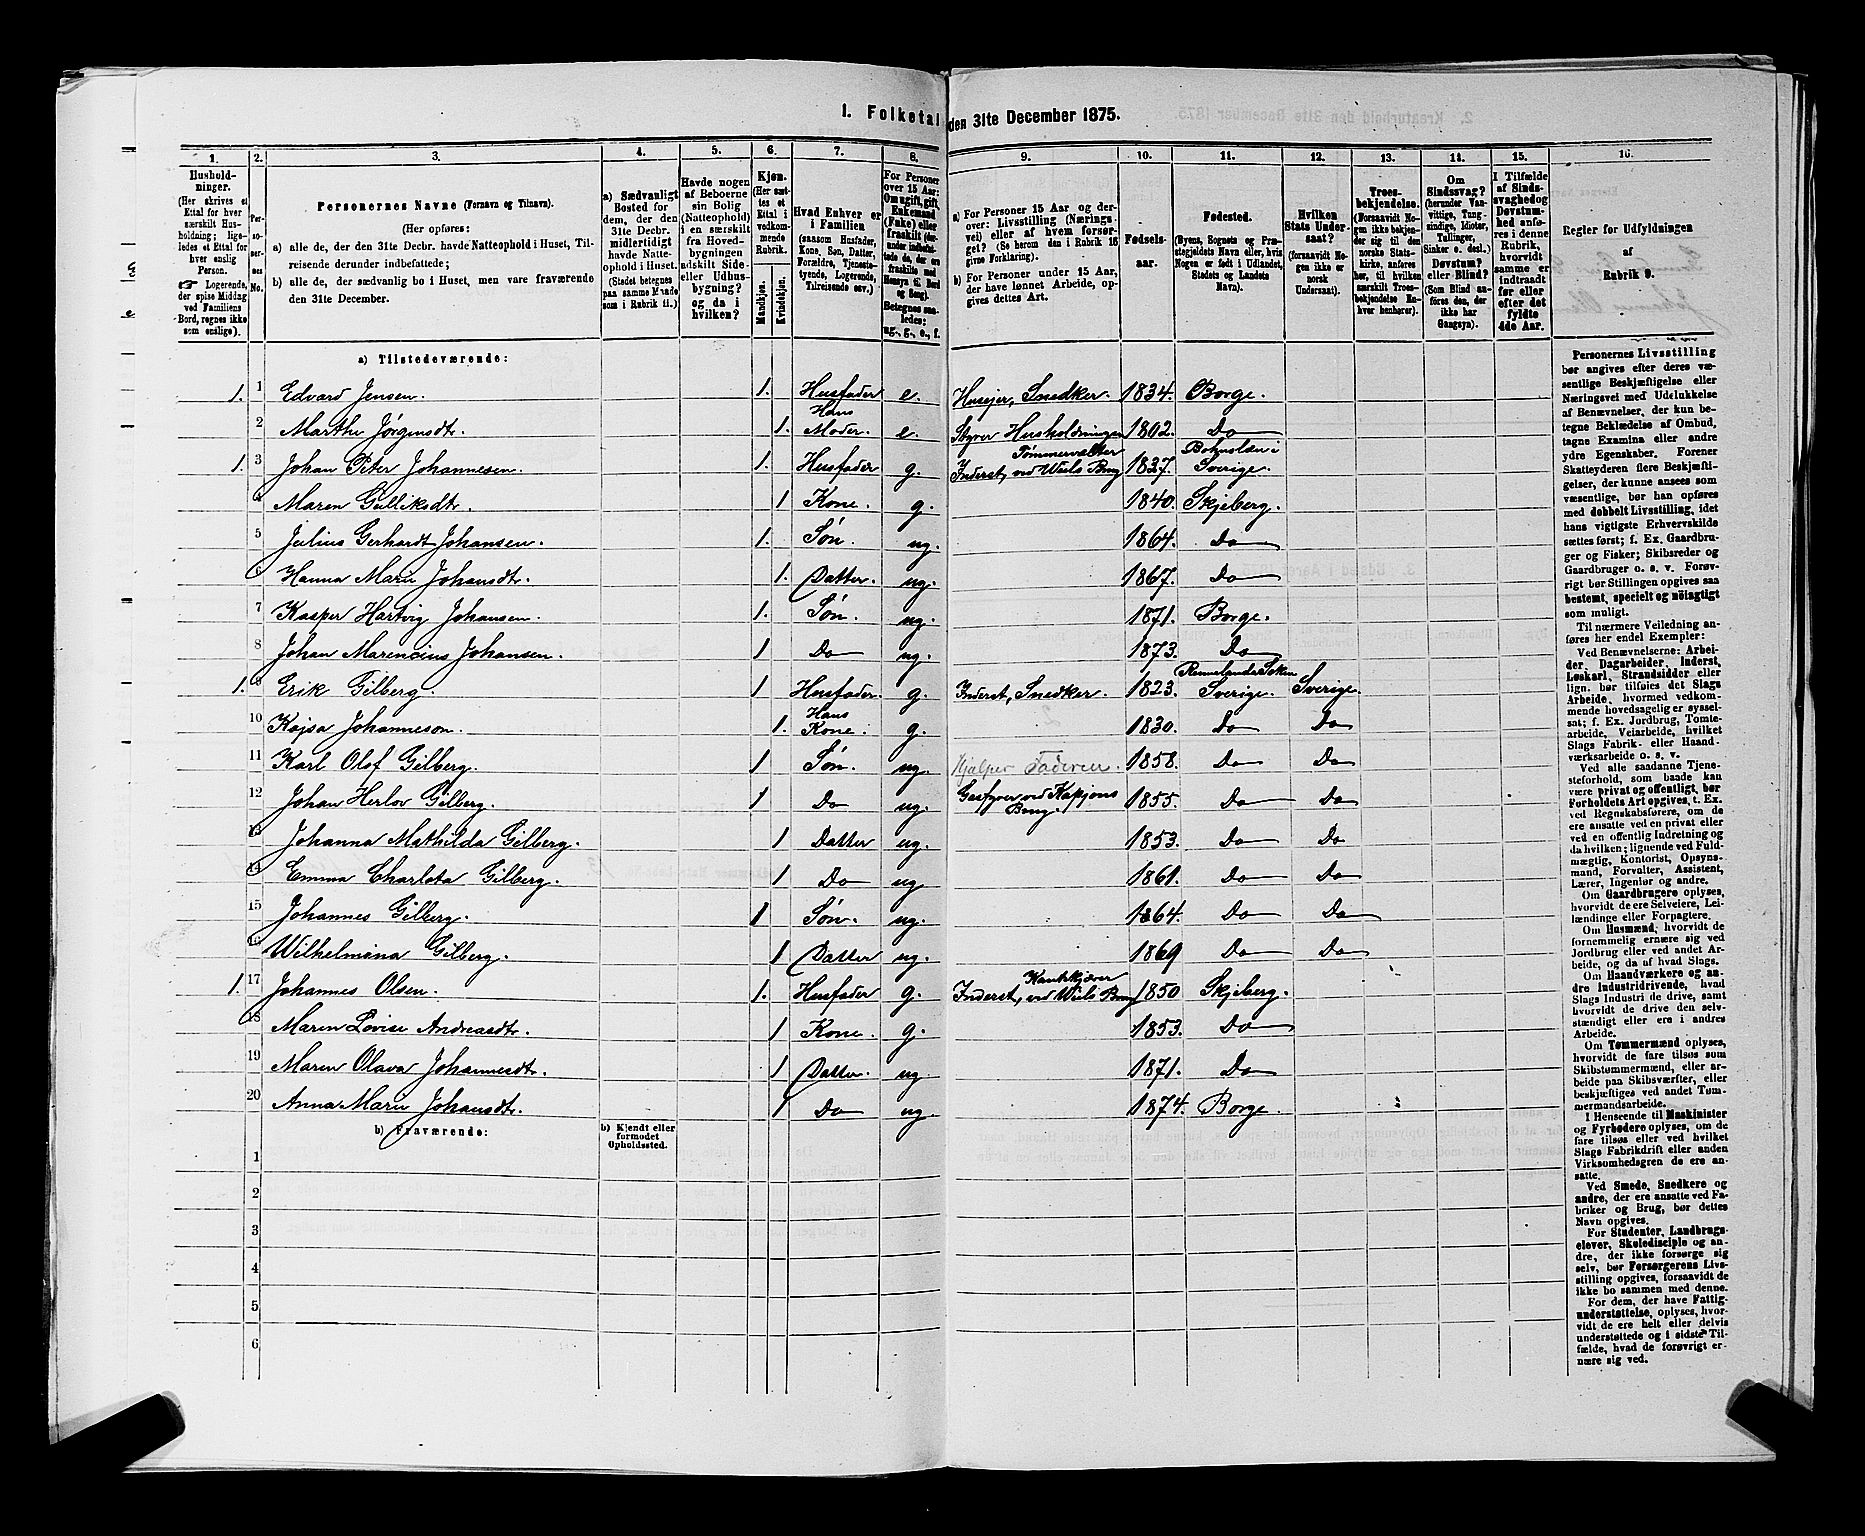 1. Folketal den 31te December 1875.
1. 2. 3. 4. 5. 6. 7. 8. 9. 10. 11. 12. 13. 14. 15. 16.
Hushold-
ninger.
(Her skrives et
Ettal for hver
særskilt Hus-
holdning; lige-
ledes et Ettal for
hver enslig
Person.
☛ Logerende,
der spise Middag
ved Familiens
Bord, regnes ikke
som enslige).
Per-
so-
ner-
nes
No.
Personernes Navne (Fornavn og Tilnavn).
(Her opføres:
a) alle de, der den 31te Decbr. havde Natteophold i Huset, Til-
reisende derunder indbefattede;
b) alle de, der sædvanlig bo i Huset, men vare fraværende
den 31te December.
a) Sædvanligt
Bosted for
dem, der den
31te Decbr.
midlertidigt
havde Natte-
ophold i Huset.
(Stedet betegnes
paa samme Maade
som i Rubrik 11.)
Havde nogen
af Beboerne
sin Bolig
(Natteophold)
i en særskilt
fra Hoved-
bygningen
adskilt Side-
eller Udhus-
bygning?
og da i
hvilken?
Kjøn.
(Her sæt-
tes et
Ettal i
vedkom-
mende
Rubrik.
Mandkjøn.
Kvindekjøn.
Hvad Enhver er
i Familien
(saasom Husfader,
Kone, Søn, Datter,
Forældre, Tjeneste-
tyende, Logerende,
Tilreisende osv.)
For Personer
over 15 Aar:
Om ugift, gift,
Enkemand
(Enke) eller
fraskilt (der-
under indbefat-
tede de, der ere
fraskilte med
Hensyn til Bord
og Seng).
Betegnes saa-
ledes:
ug., g., e., f.
a) For Personer 15 Aar og der-
over: Livsstilling (Nærings-
vei) eller af hvem forsør-
get? (Se herom den i Rubrik 16
givne Forklaring).
b) For Personer under 15 Aar,
der have lønnet Arbeide, op-
gives dettes Art.
Fødsels-
aar.
Fødested.
(Byens, Sognets og Præ-
stegjeldets Navn eller, hvis
Nogen er født i Udlandet,
Stedets og Landets
Navn).
Hvilken
Stats Under-
saat?
(forsaavidt No-
gen ikke er
norsk
Undersaat).
Troes-
bekjendelse.
(Forsaavidt No-
gen ikke bekjen-
der sig til den
norske Stats-
kirke, anføres
her, til hvilken
særskilt Troes-
bekjendelse En-
hver henhører).
Om
Sindssvag?
(herunder Van-
vittige, Tung-
sindige, Idioter,
Tullinger,
Sinker o. desl.)
Døvstum?
eller Blind?
(Som Blind an-
føres den, der
ikke har
Gangsyn).
I Tilfælde
af Sinds-
svaghed og
Døvstum-
hed anfø-
res i denne
Rubrik,
hvorvidt
samme er
indtraadt
før eller
efter det
fyldte
4de Aar.
Regler for Udfyldningen
af
Rubrik 9.
a) Tilstedeværende:
1. 1 Edvard Jensen. 1. Husfader e. Huseier, Snedker. 1834. Borge.
2 Marthe Jørgensdtr. 1. Hans Moder. e. Styrer Husholdningen 1802. Do
1. 3 Johan Peter Johannesen. 1. Husfader g. Inderst, Tømmervalter ved Wiels Brug 1837. Bohuslen i Sverige.
4 Maren Gulliksdtr. 1 Kone. g. 1840. Skjeberg.
5 Julius Gerhardt Johansen. 1. Søn. ug. 1864. Do
6 Hanna Marie Johansdtr. 1. Datter. ug. 1867. Do
7 Kasper Hartvig Johansen. 1. Søn. ug. 1871. Borge.
8 Johan Marencius Johansen. 1 Do ug. 1873. Do
1. 9 Erik Gilberg. 1 Husfader. g. Inderst, Snedker. 1823. Sverige. Sverige.
10 Kajsa Johanneson. 1. Hans Kone. g. 1830. Do Do
11 Karl Olof Gilberg. 1 Søn. ug. Hjælper Faderen. 1858. Do Do
12 Johan Herlov Gilberg. 1 Do ug. ved Brug. 1855. Do Do
13 Johanna Mathilda Gilberg. 1 Datter ug. 1853. Do Do
14 Emma Charlota Gilberg. 1 Do ug 1861. Do Do
15 Johannes Gilberg. 1 Søn. ug. 1864. Do Do
16 Wilhelmina Gilberg. 1 Datter ug. 1869 Do Do
1. 17 Johannes Olsen. 1. Husfader g. Inderst, Kantskjærer ved Wiels Brug 1850 Skjeberg.
18 Maren Lovise Andreasdtr. 1 Kone. g. 1853. Do
19 Maren Olava Johannesdtr. 1 Datter. ug 1871. Do
20 Anna Marie Johansdtr. 1 Do ug. 1874. Borge.
b) Fraværende:
b) Kjendt eller
formodet
Opholdssted.
1
2
3
4
5
6
Personernes Livsstilling
bør angives efter deres væ-
sentlige Beskjæftigelse eller
Næringsvei med Udelukkelse
af Benævnelser, der kun be-
tegne Beklædelse af Ombud,
tagne Examina eller andre
ydre Egenskaber. Forener
Skatteyderen flere Beskjæfti-
gelser, der kunne ansees som
væsentlige, bør han opføres
med dobbelt Livsstilling, idet
hans vigtigste Erhvervskilde
sættes først; f. Ex. Gaardbru-
ger og Fisker; Skibsreder og
Gaardbruger o. s. v. Forøv-
rigt bør Stillingen opgives saa
bestemt, specielt og nøiagtigt
som muligt.
Til nærmere Veiledning an-
føres her endel Exempler:
Ved Benævnelserne: Arbei-
der, Dagarbeider, Inderst,
Løskarl, Strandsidder eller
lign. bør tilføies det Slags
Arbeide, hvormed vedkom-
mende hovedsagelig er syssel-
sat; f. Ex. Jordbrug, Tomte-
arbeide, Veiarbeide, hvilket
Slags Fabrik- eller Haand-
værksarbeide o. s. v.
Ved alle saadanne Tjene-
steforhold, som baade kan
være privat og offentligt, bør
Forholdets Art opgives, t. Ex.
ved Regnskabsførere, om de
ere ansatte ved en privat eller
ved en offentlig Indretning og
da hvilken; lignende ved Fuld-
mægtig, Kontorist, Opsyns-
mand, Forvalter, Assistent,
Lærer, Ingeniør og andre.
Om Gaardbrugere oplyses,
hvorvidt de ere Selveiere, Lei-
lændinge eller Forpagtere.
Om Husmænd, hvorvidt de
fornemmelig ernære sig ved
Jordbrug eller ved andet Ar-
beide, og da af hvad Slags.
Om Haandværkere og an-
dre Industridrivende, hvad
Slags Industri de drive, samt
hvorvidt de drive den selv-
stændigt eller ere i andres
Arbeide.
Om Tømmermænd oplyses,
hvorvidt de fare tilsøs som
Skibstømmermænd, eller ar-
beide paa Skibsværfter, eller
beskjæftiges ved andet Tøm-
mermandsarbeide.
I Henseende til Maskinister
og Fyrbødere oplyses, om de
fare tilsøs eller ved hvilket
Slags Fabrikdrift eller anden
Virksomhedsgren de ere an-
satte.
Ved Smede, Snedkere og
andre, der ere ansatte ved Fa-
briker og Brug, bør dettes
Navn opgives.
For Studenter, Landbrugs-
elever, Skoledisciple og an-
dre, der ikke forsørge sig
selv, bør Forsørgerens Livs-
stilling opgives, forsaavidt de
ikke bo sammen med denne.
For dem, der have Fattig-
understøttelse, oplyses, hvor-
vidt de ere helt eller delvis
understøttede og i sidste Til-
fælde, hvad de forøvrigt er-
nære sig ved.